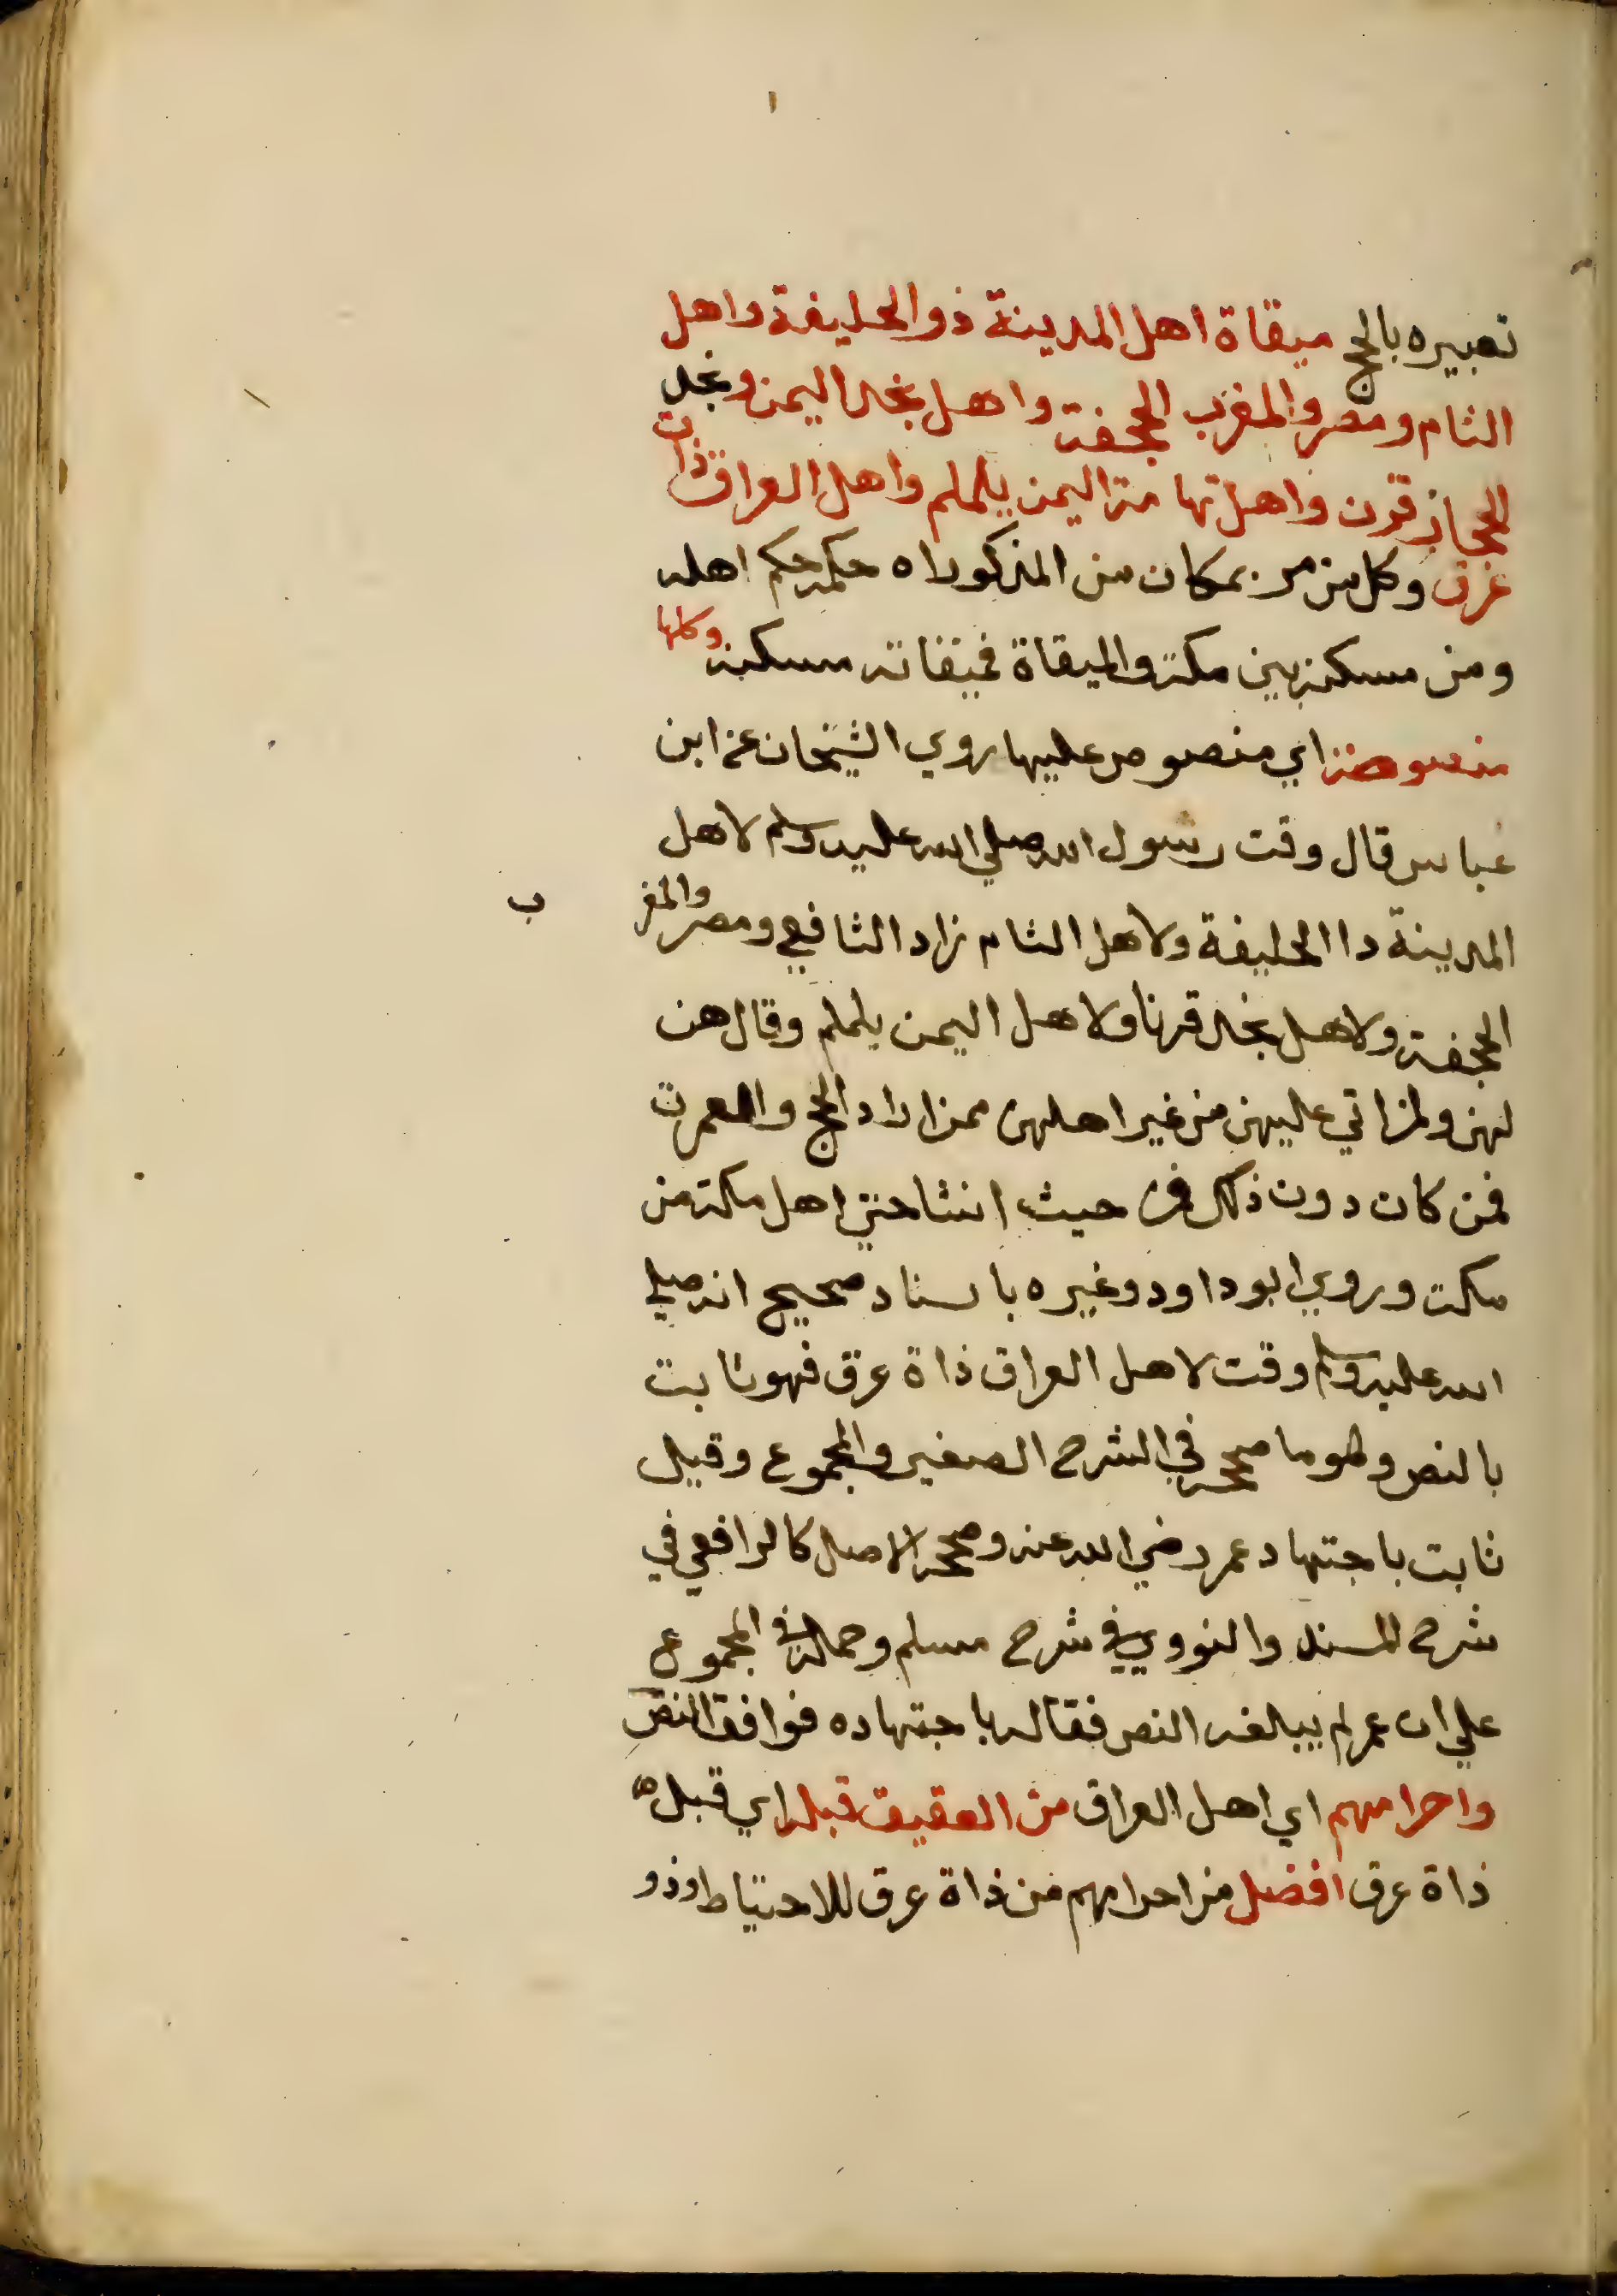 تعبيره بالحج ميقاة اهل المدينة ذو الحليفة واهل
الشام ومصر والمغرب الجحفة واهل نجد اليمن ونجد
الحجاز قرن واهل تهامة اليمن يلملم واهل العراق ذات
عرق وكل من مر بمكان من المذكوراه حكمه حكم اهله
ومن مسكنه بين مكة والميقاة فميقاته مسكنه وكلها
منصوصة اي منصوص عليها روي الشيخان عن ابن
عباس قال وقت رسول الله صلي الله عليه وسلم لاهل
المدينة دا الحليفة ولاهل الشام زاد الشافعي ومصر والمغر
ب
الجحفة ولاهل نجد قرنا ولاهل اليمن يلملم وقال هن
لهن ولمن اتي عليهن من غير اهلهن ممن اراد الحج والعمرت
فمن كان دون ذلك فمن حيث انشا حتي اهل مكة من
مكت وروي ابو داود وغيره باسناد صحيح انه صلي
الله عليه وسلم وقت لاهل العراق ذاة عرق فهو ثابت
بالنص وهو ما صححه في الشرح الصغير والمجموع وقيل
ثابت باجتهاد عمر رضي الله عنه وصححه الاصل كالرافعي في
شرح المسند والنووي في شرح مسلم وحمله في المجموع
علي ان عمر لم يبلغه النص فقاله باجتهاده فوافق النص
واحرامهم اي اهل العراق من العقيق قبله اي قبل
ذاة عرق افضل من احرامهم من ذاة عرق للاحتياط وذو